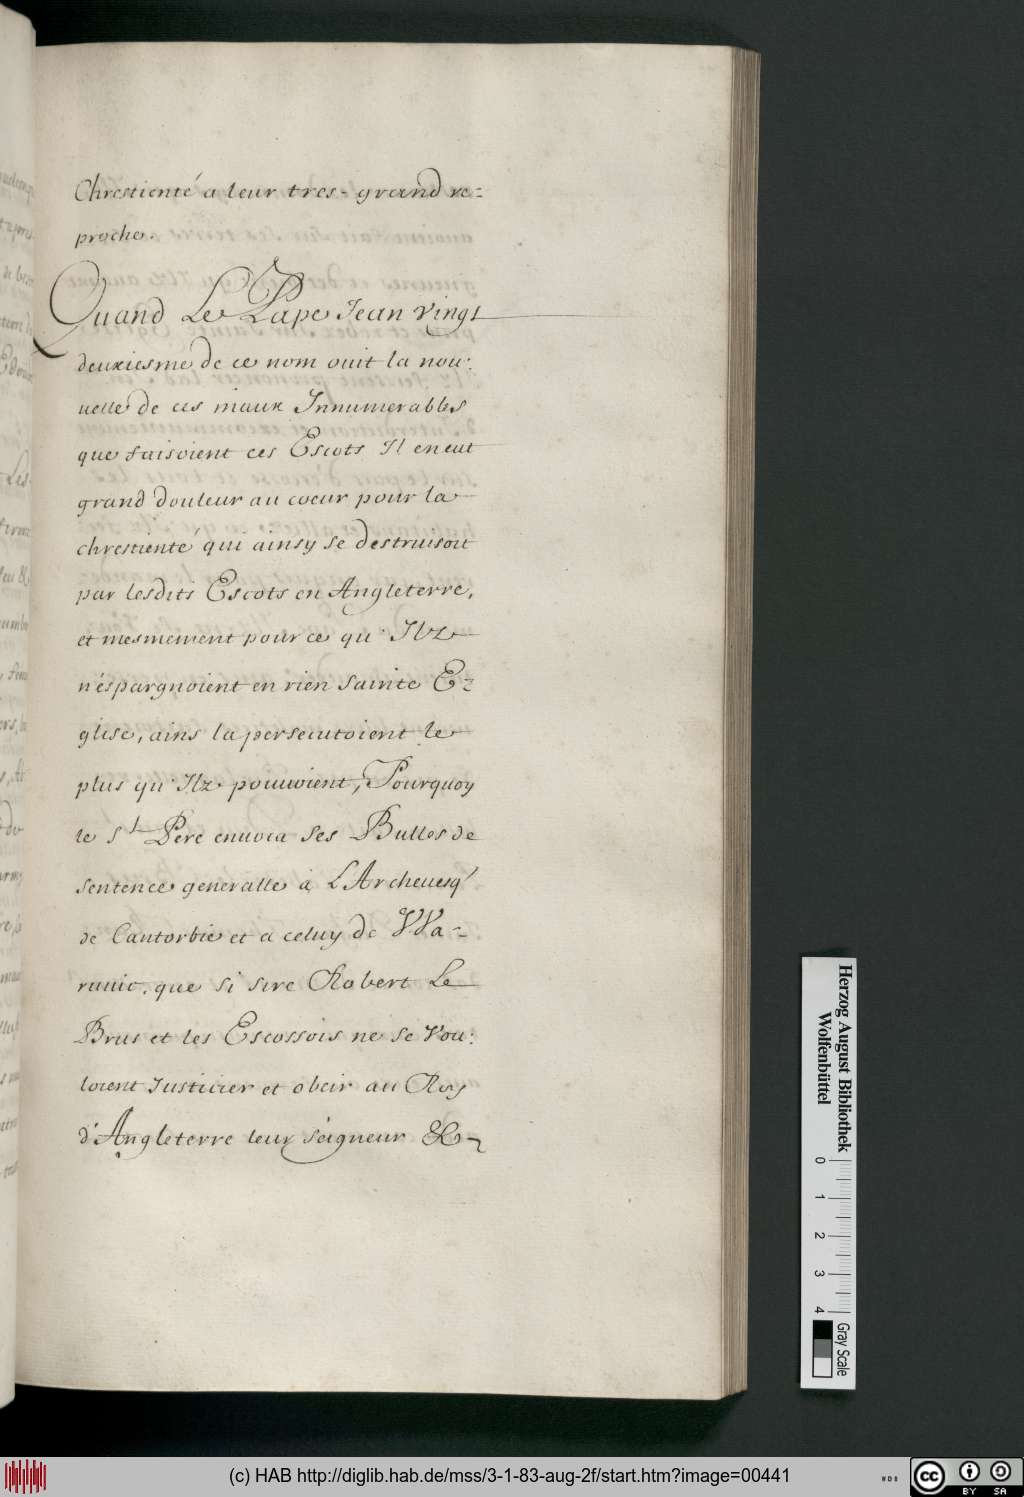 Chrestienté a leur tres-grand re=
proche.
Quand Le Pape Jean vingt
deuxiesme de ce nom ouit la nou:
uelle de ces maux Innumerables
que faisoient ces Escots Il en eut
grand douleur au coeur pour la
chrestienté qui ainsy se destruisoit
par lesdits Escots en Angleterre,
et mesmement pour ce qu'Ilz
n'éspargnoient en rien sainte E=
glise, ains la persecutoient le
plus qu'Ilz pouuoient, Pourquoy
le St. Pere enuoia ses Bulles de
sentence generalle à L'Archeuesq'
de Cantorbie et a celuy de Wa=
ruuic, que si sire Robert Le
Brus et les Escossois ne se vou:
loient Justicier et obeir au Roy
d'Angleterre leur seigneur &
Herzog August Bibliothek
Wolfenbüttel
0 1 2 3 4
Gray Scale
(c) HAB http://diglib.hab.de/mss/3-1-83-aug-2f/start.htm?image=00441
WDB
cc BY SA